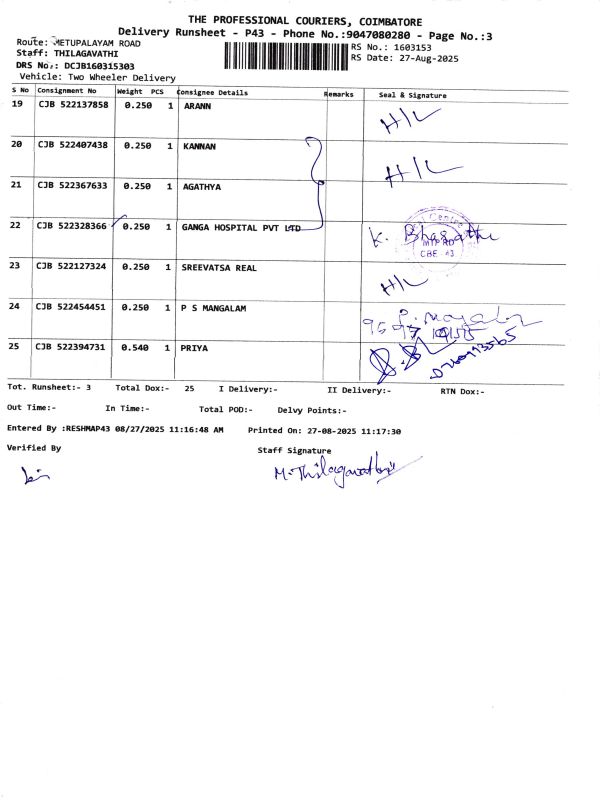 THE PROFESSIONAL COURIERS, COIMBATORE
Delivery Runsheet - P43 - Phone No.:9047080280 - Page No.:3
Route: METUPALAYAM ROAD
RS No.: 1603153
Staff: THILAGAVATHI
RS Date: 27-Aug-2025
DRS No.: DCJB160315303
Vehicle: Two Wheeler Delivery
S No Consignment No Weight PCS Consignee Details Remarks Seal & Signature
19 CJB 522137858 0.250 1 ARANN H/L
20 CJB 522407438 0.250 1 KANNAN H/L
21 CJB 522367633 0.250 1 AGATHYA
22 CJB 522328366 0.250 1 GANGA HOSPITAL PVT LTD K. Bharathi
MTP RD
CBE - 43
23 CJB 522127324 0.250 1 SREEVATSA REAL H/L
24 CJB 522454451 0.250 1 P S MANGALAM
25 CJB 522394731 0.540 1 PRIYA
Tot. Runsheet:- 3 Total Dox:- 25 I Delivery:- II Delivery:- RTN Dox:-
Out Time:- In Time:- Total POD:- Delvy Points:-
Entered By :RESHMAP43 08/27/2025 11:16:48 AM Printed On: 27-08-2025 11:17:30
Verified By Staff Signature
M. Thilagavathi